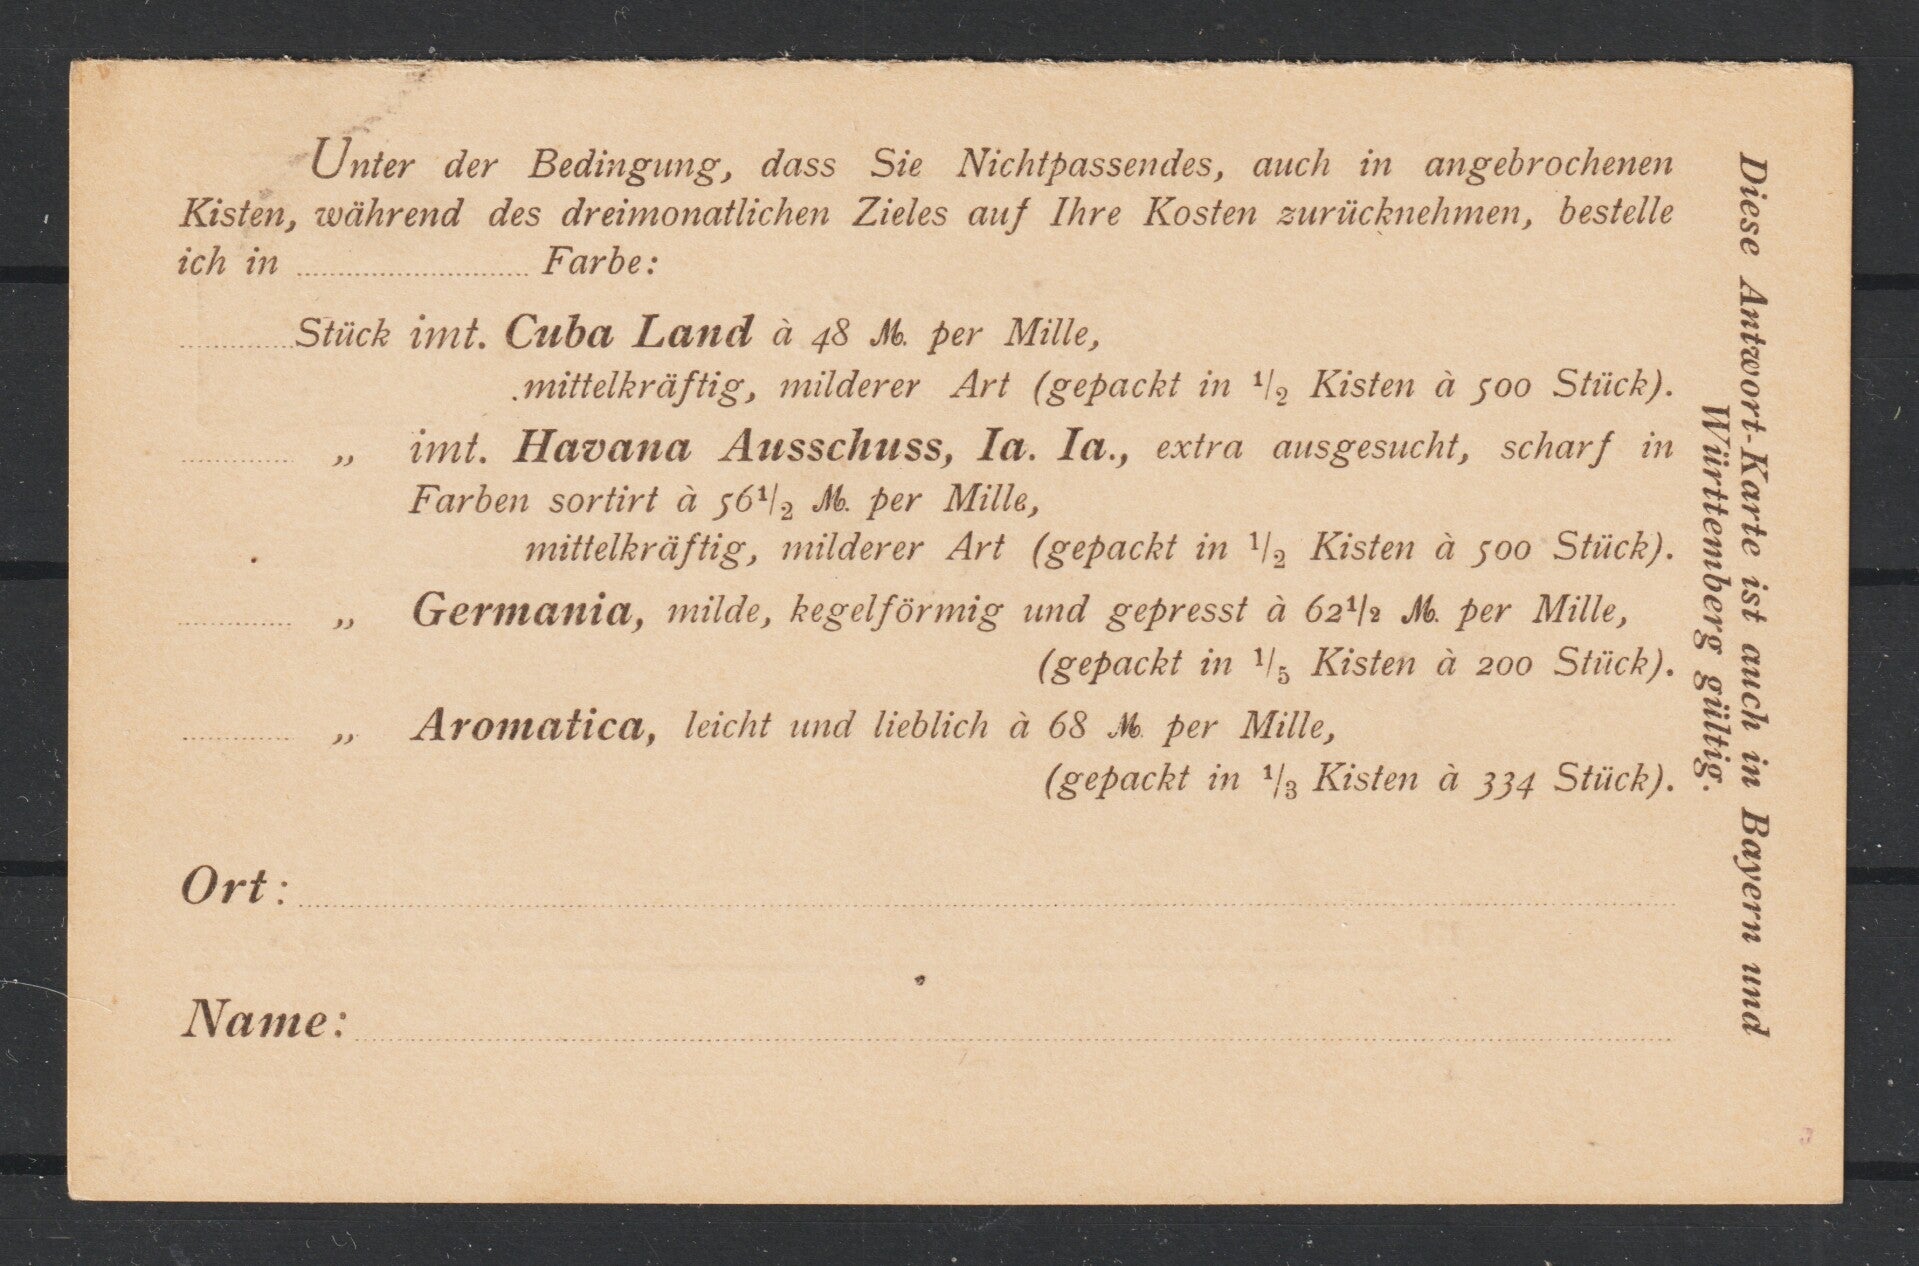 Unter der Bedingung, dass Sie Nichtpassendes, auch in angebrochenen
Kisten, während des dreimonatlichen Zieles auf Ihre Kosten zurücknehmen, bestelle
ich in ........................ Farbe:
............Stück imt. Cuba Land à 48 M. per Mille,
mittelkräftig, milderer Art (gepackt in 1/2 Kisten à 500 Stück).
............ „ imt. Havana Ausschuss, Ia. Ia., extra ausgesucht, scharf in
Farben sortirt à 56 1/2 M. per Mille,
mittelkräftig, milderer Art (gepackt in 1/2 Kisten à 500 Stück).
............ „ Germania, milde, kegelförmig und gepresst à 62 1/2 M. per Mille,
(gepackt in 1/5 Kisten à 200 Stück).
............ „ Aromatica, leicht und lieblich à 68 M. per Mille,
(gepackt in 1/3 Kisten à 334 Stück).
Ort:
Name:
Diese Antwort-Karte ist auch in Bayern und
Württemberg gültig.